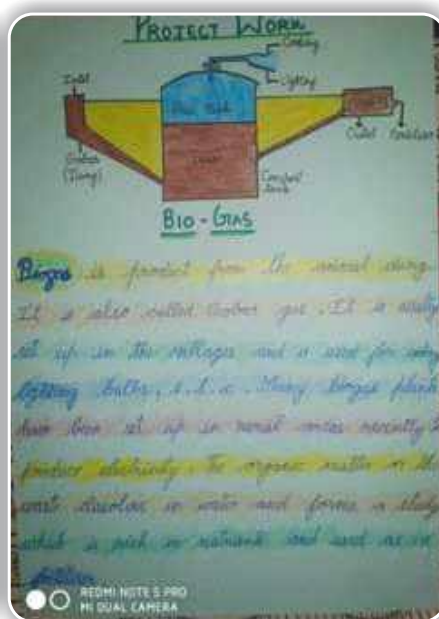 PROJECT WORK
Cooking
Lighting
Inlet
Outlet
Gobar
(Dung)
BIO-GAS
Biogas is product from the animal dung.
It is also called Gobar gas. It is
set up in the villages and is used for
lighting bulbs, e.t.c. Many biogas plants
have been set up in rural areas recently to
produce electricity. The organic matter in the
waste dissolve in water and forms a
which is rich in nutrients and used as in
REDMI NOTE 5 PRO
MI DUAL CAMERA